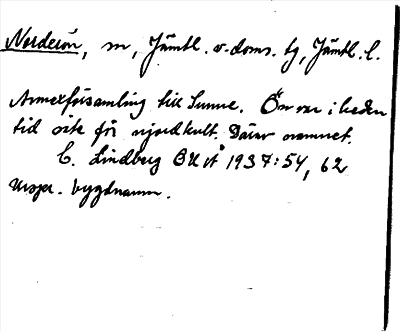 Norderön, sn, Jämtl. v. doms. tg, Jämtl. l.
Annexförsamling till Sunne. Ön var i heden
tid site för njordkult. Därav namnet.
C. Lindberg OUÅ 1937:54, 62
Urspr. bygdnamn.